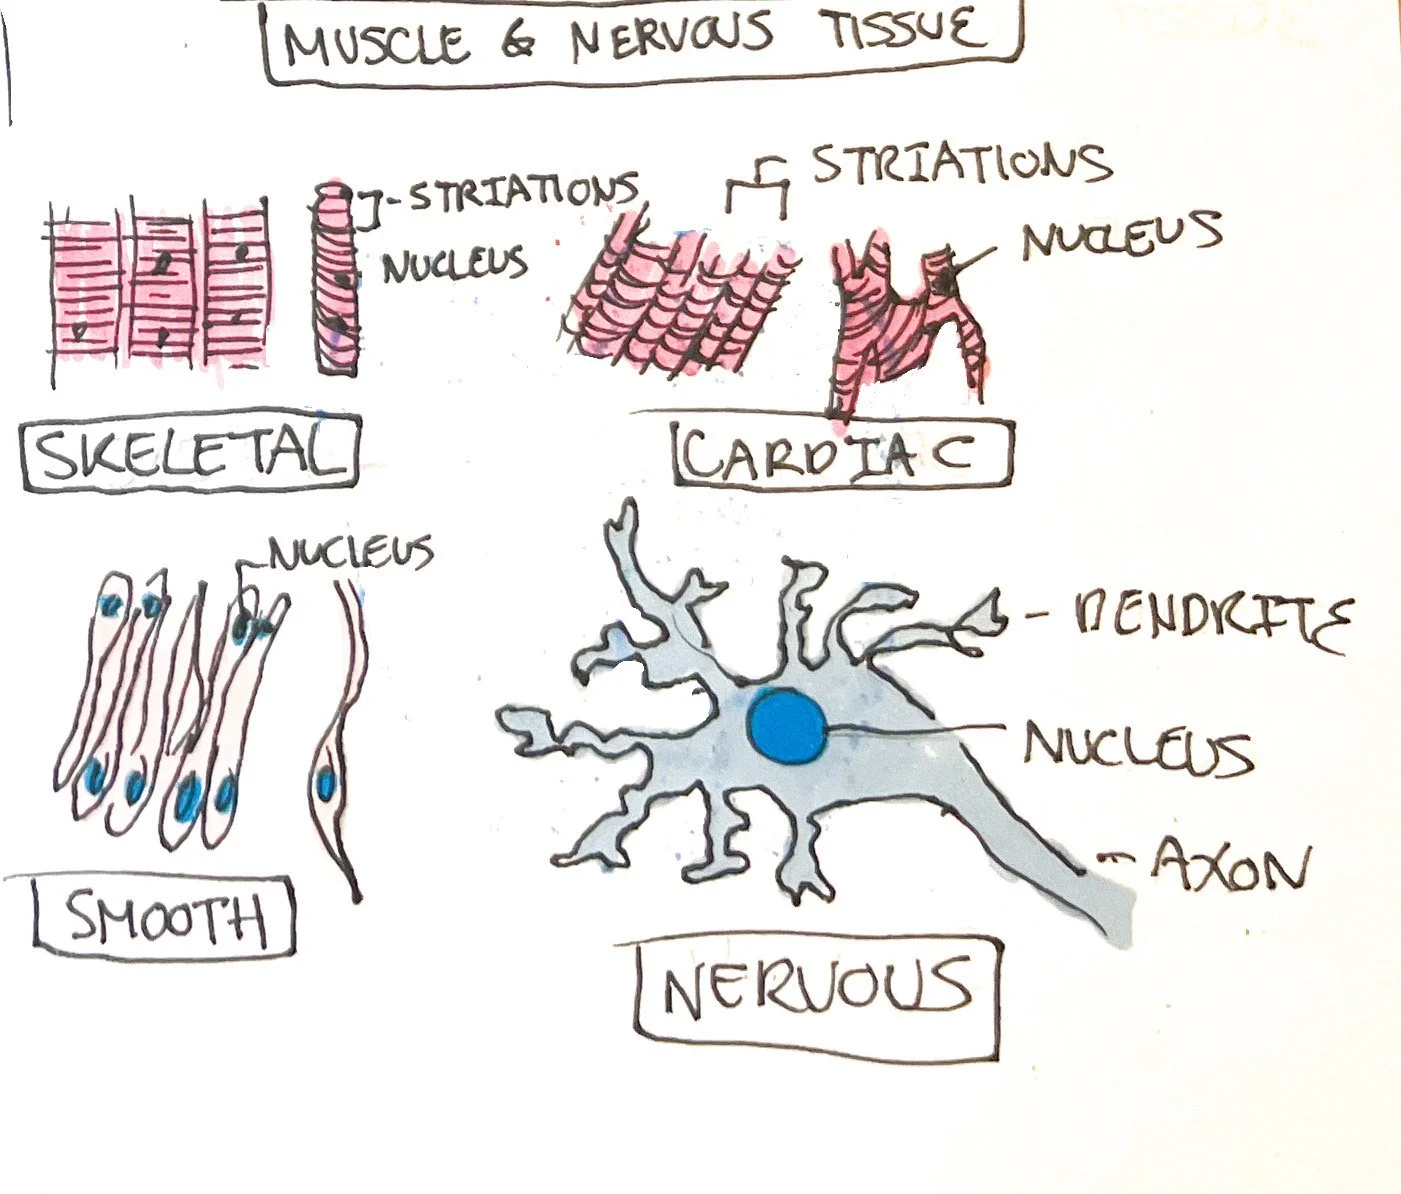 MUSCLE & NERVOUS TISSUE
STRIATIONS
NUCLEUS
SKELETAL
STRIATIONS
NUCLEUS
CARDIAC
NUCLEUS
SMOOTH
DENDRITE
NUCLEUS
AXON
NERVOUS